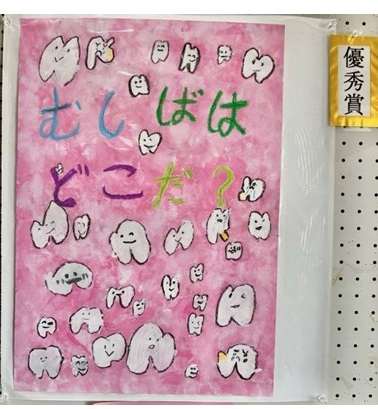 むしばは
どこだ?
優秀賞